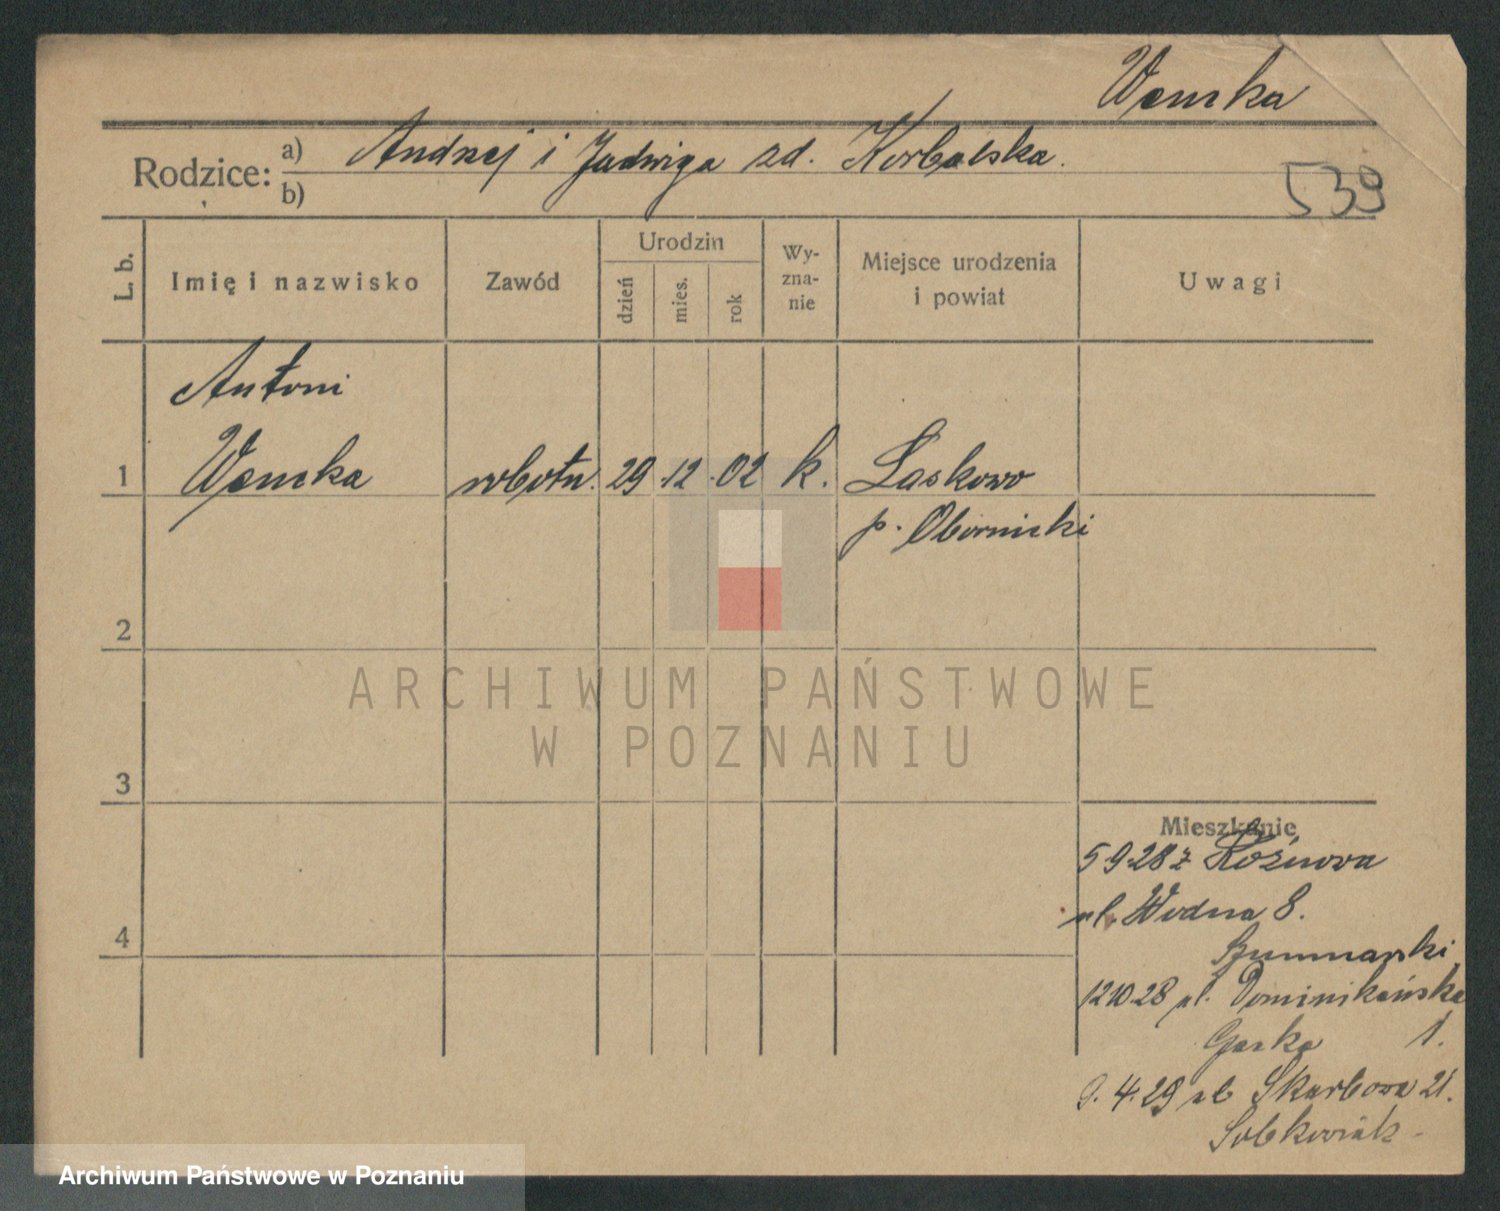 Wencka
Rodzice: a) Andrzej i Jadwiga zd. Korbalska.
b)
539
L. b.
Imię i nazwisko
Zawód
Urodzin
dzień
mies.
rok
Wy-
zna-
nie
Miejsce urodzenia
i powiat
Uwagi
Antoni
1 Wencka robotn. 29 12 02 k. Laskowo
p. Obornicki
2
3
4
Mieszkanie
5 9 28 z Rożnowa
ul. Wodna 8.
12 10 28 ul. Dominikańska
Gacka 1.
9. 4. 29 ul Skarbowa 21.
Sobkowiak
ARCHIWUM PAŃSTWOWE
W POZNANIU
Archiwum Państwowe w Poznaniu